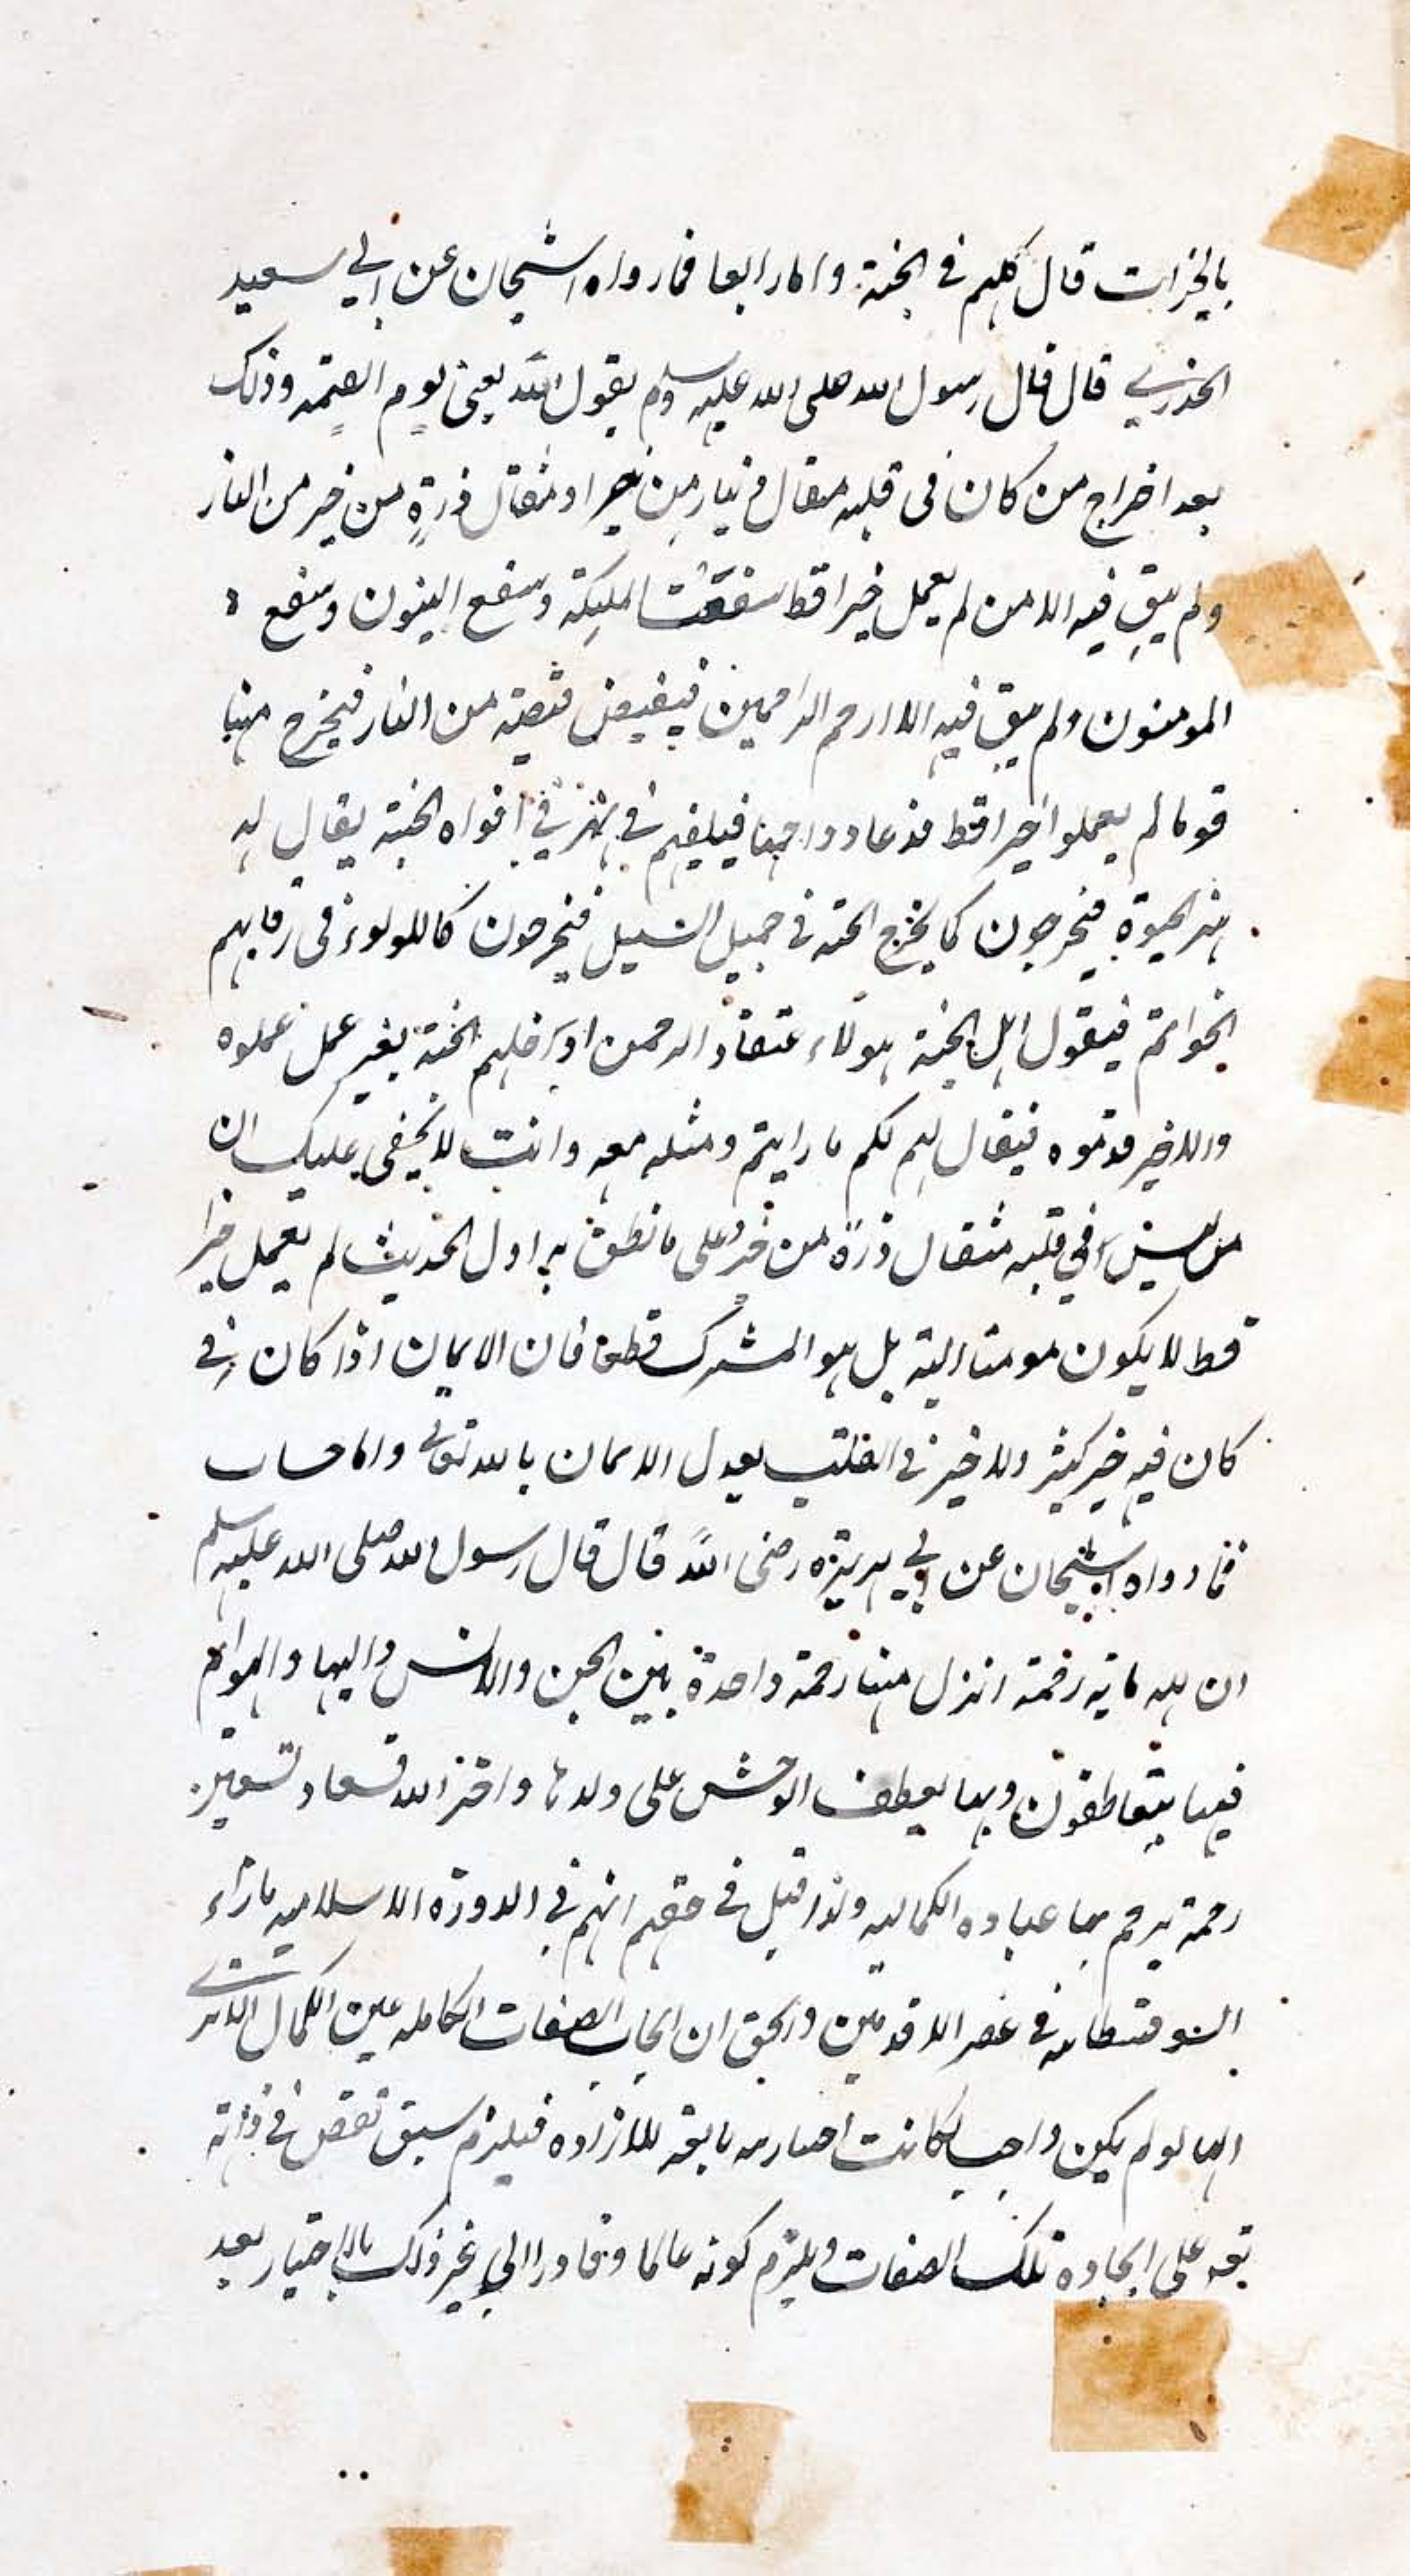 بالخيرات قال كلهم في الجنة واما رابعا فما رواه الشيخان عن ابي سعيد
الخدري قال قال رسول الله صلى الله عليه وسلم يقول الله يعني يوم القيمة وذلك
بعد اخراج من كان في قلبه مثقال دينار من خير او مثقال ذرة من خير من النار
ولم يبق فيه الا من لم يعمل خيرا قط شفعت المليكة وشفع النبيون وشفع
المومنون ولم يبق فيه الا ارحم الراحمين فيقبض قبضة من النار فيخرج منها
قوما لم يعملوا خيرا قط قد عادوا حمما فيلقيهم في نهر في افواه الجنة يقال له
نهر الحيوة فيخرجون كما يخرج الحبة في حميل السيل فيخرجون كاللولوء في رقابهم
الخواتم فيقول اهل الجنة هولاء عتقاء الرحمن ادخلهم الجنة بغير عمل عملوه
ولا خير قدموه فيقال لهم لكم ما رايتم ومثله معه وانت لا يخفى عليك ان
من ليس في قلبه مثقال ذرة من خير على ما نطق به اول الحديث لم يعمل خيرا
قط لا يكون مومنا البتة بل هو المشرك قطعا فان الايمان اذا كان في
كان فيه خير كثير ولا خير في القلب يعدل الايمان بالله تعالى واما
فما رواه الشيخان عن ابي هريرة رضي الله قال قال رسول الله صلى الله عليه وسلم
ان لله ماية رحمة انزل منها رحمة واحدة بين الجن والانس والبها والهوام
فبها يتعاطفون وبها يعطف الوحش على ولدها واخر الله تسعا وتسعين
رحمة يرحم بها عباده ولذا قيل في حقهم انهم في الدورة الاسلامية بازاء
السوفسطايية في عصر الاقدمين والحق ان ايجاب الصفات الكاملة عين الكمال
انها لو لم يكن واجبا لكانت اختيارية تابعة للارادة فيلزم سبق نقص في ذاته
تعه على ايجاده تلك الصفات ويلزم كونه عالما وقادرا الى غير ذلك بالاختيار بعد